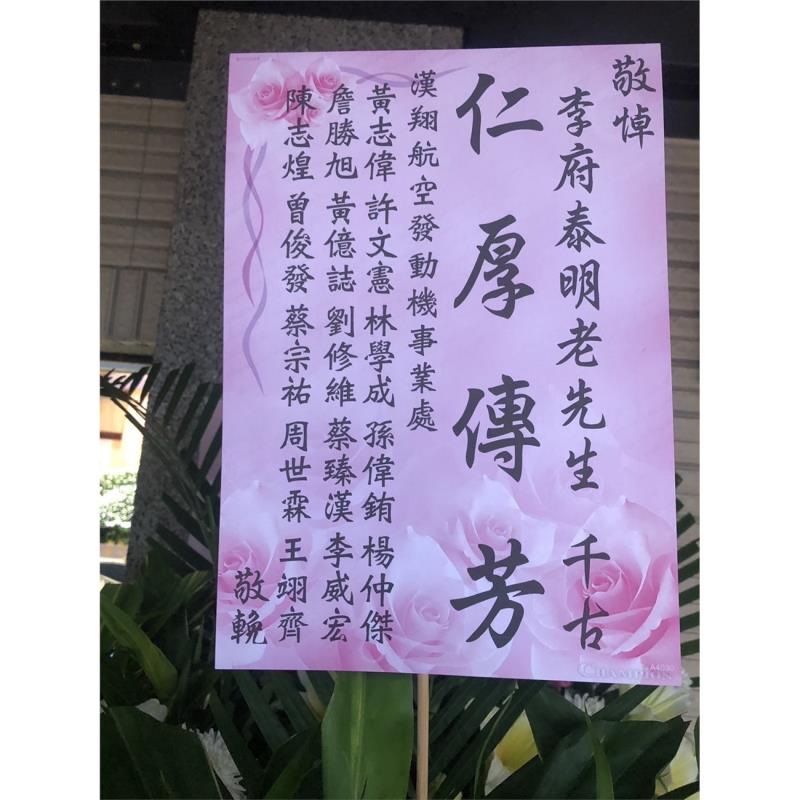 敬悼
李府泰明老先生 千古
仁厚傳芳
漢翔航空發動機事業處
黃志偉 許文憲 林學成 孫偉銪 楊仲傑
詹勝旭 黃億誌 劉修維 蔡臻漢 李威宏
陳志煌 曾俊發 蔡宗祐 周世霖 王翊齊
敬輓
A4090
CHAMPION